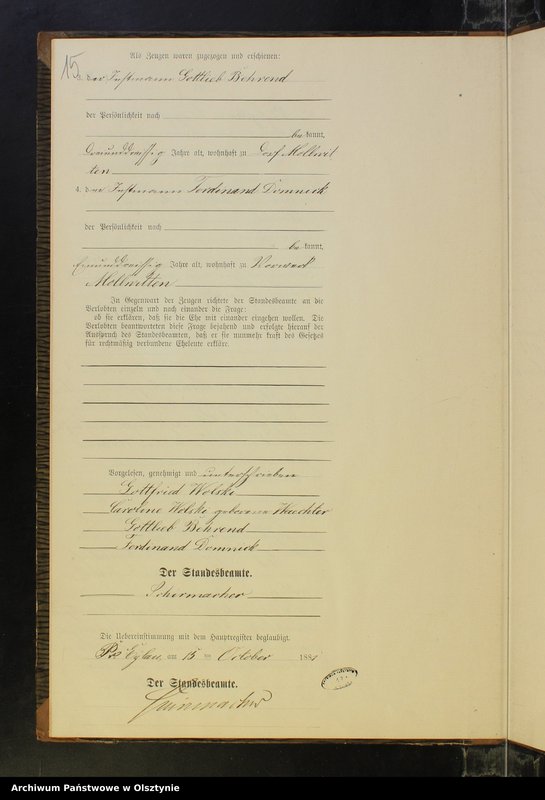 15
Als Zeugen waren zugezogen und erschienen:
der Instmann Gottlieb Behrend
der Persönlichkeit nach
be kannt,
dreiunddreißig Jahre alt, wohnhaft zu Dorf Mollwit
ten
4. der Instmann Ferdinand Domnick
der Persönlichkeit nach
be kannt,
Jahre alt, wohnhaft zu Vorwerk
Mollwitten
In Gegenwart der Zeugen richtete der Standesbeamte an die
Verlobten einzeln und nach einander die Frage:
ob sie erklären, daß sie die Ehe mit einander eingehen wollen. Die
Verlobten beantworteten diese Frage bejahend und erfolgte hierauf der
Ausspruch des Standesbeamten, daß er sie nunmehr kraft des Gesetzes
für rechtmäßig verbundene Eheleute erkläre.
Vorgelesen, genehmigt und unterschrieben
Gottfried Wolski
Caroline Wolski geborene
Gottlieb Behrend
Ferdinand Domnick
Der Standesbeamte.
Schirmacher
Die Uebereinstimmung mit dem Hauptregister beglaubigt.
Pr Eylau, am 15 ten October 188
Der Standesbeamte.
Schirmacher
Archiwum Państwowe w Olsztynie